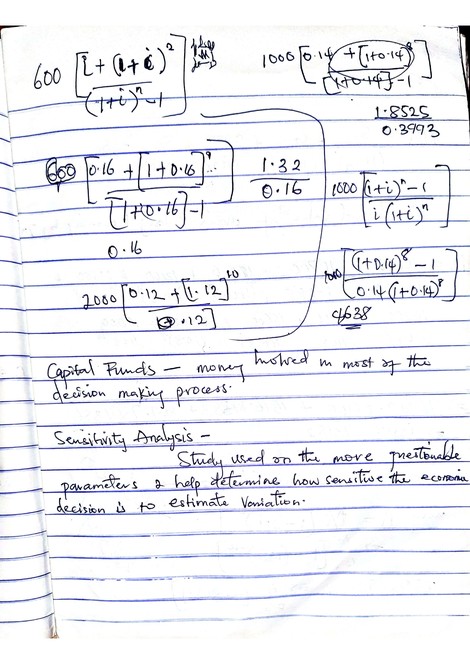 600 [i + (1 + i)²
(1+i)ⁿ - 1]
1000 [0.14 + [1+0.14]⁸
[1+0.14] - 1]
1.8525
0.3993
600 [0.16 + [1+0.16]⁹
[1+0.16] - 1]
0.16
1.32
0.16
1000 [(1+i)ⁿ - 1
i(1+i)ⁿ]
2000 [0.12 + [1.12]¹⁰
.12]
1000 [(1+0.14)⁸ - 1
0.14(1+0.14)⁸]
4638
Capital Funds — money involved in most of the
decision making process.
Sensitivity Analysis —
Study used on the more questionable
parameters & help determine how sensitive the economic
decision is to estimate variation.